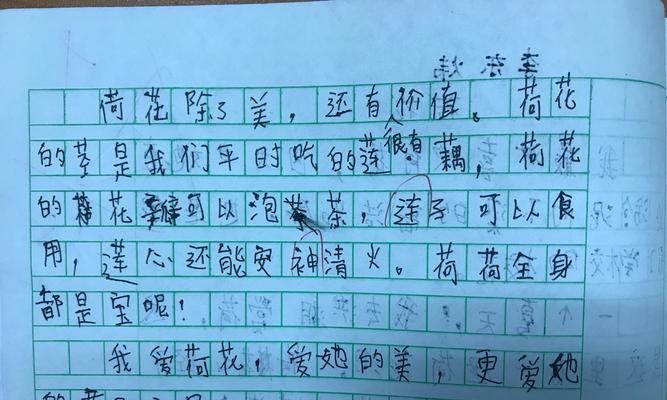 李东炜
荷花除了美，还有价值。荷花
很有
的茎是我们平时吃的莲藕，荷花
的花瓣可以泡茶，莲子可以食
用，莲心还能安神清火。荷荷全身
都是宝呢！
我爱荷花，爱她的美，更爱她